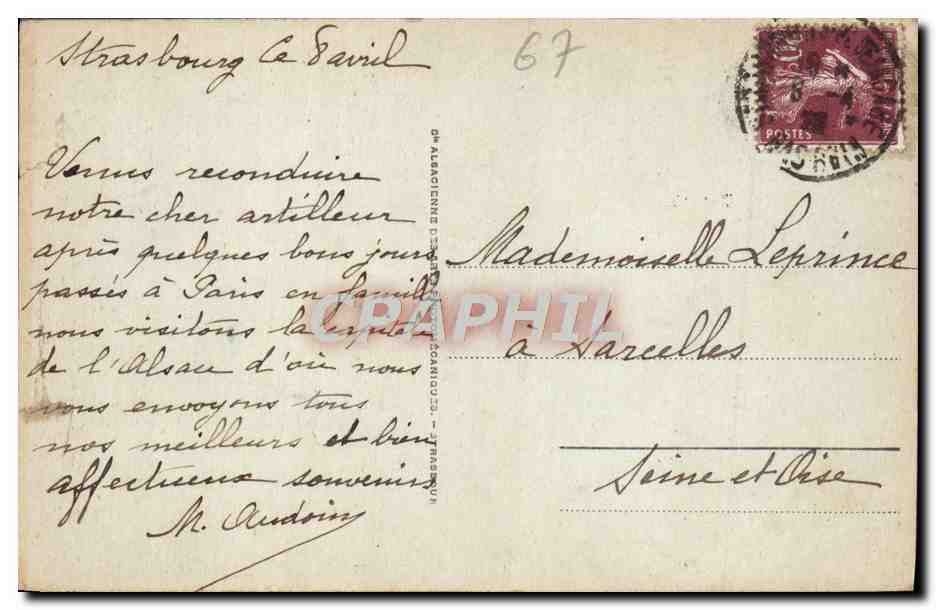 Strasbourg Ce 8 avril
67
POSTES
Venus reconduire
notre cher artilleur
après quelques bons jours
passés à Paris en famille
nous visitons la capitale
de l'Alsace d'où nous
vous envoyons tous
nos meilleurs et bien
affectueux souvenirs
M. Audoin
Cie ALSACIENNE DES ARTS PHOTOMÉCANIQUES. — STRASBOURG
Mademoiselle Leprince
à Sarcelles
Seine et Oise
CPAPHIL